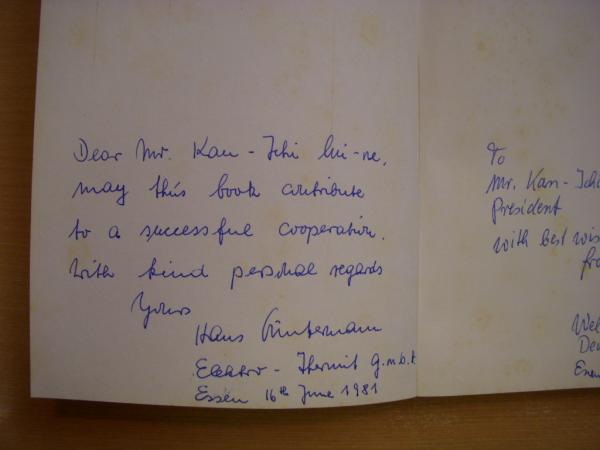 Dear Mr. Kan - Ichi
may this book contribute
to a successful cooperation.
With kind personal regards
Yours
Hans Güntermann
Elektro - Thermit G.m.b.H
Essen 16th June 1981
To
Mr. Kan - Ichi
President
with best wis
fro
Wel
Essen